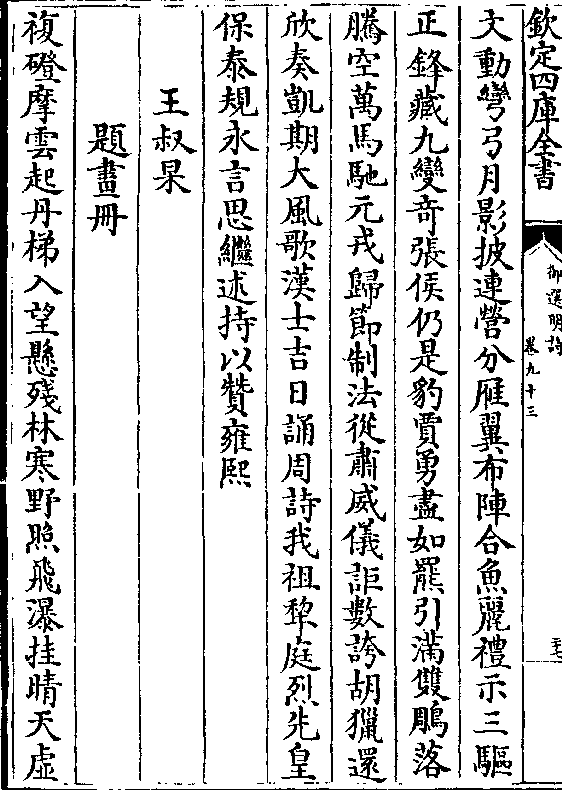 欽定四庫全書
御選明詩
卷九十三
文動彎弓月影披連營分雁翼布陣合魚麗禮示三驅
正鋒藏九變竒張侯仍是豹賈勇盡如羆引滿雙鵰落
騰空萬馬馳元戎歸節制法從肅威儀詎數誇胡獵還
欣奏凱期大風歌漢士吉日誦周詩我祖犂庭烈先皇
保泰規永言思繼述持以贊雍熙
王叔杲
題畫冊
複磴摩雲起丹梯入望懸殘林寒野照飛瀑挂晴天虛